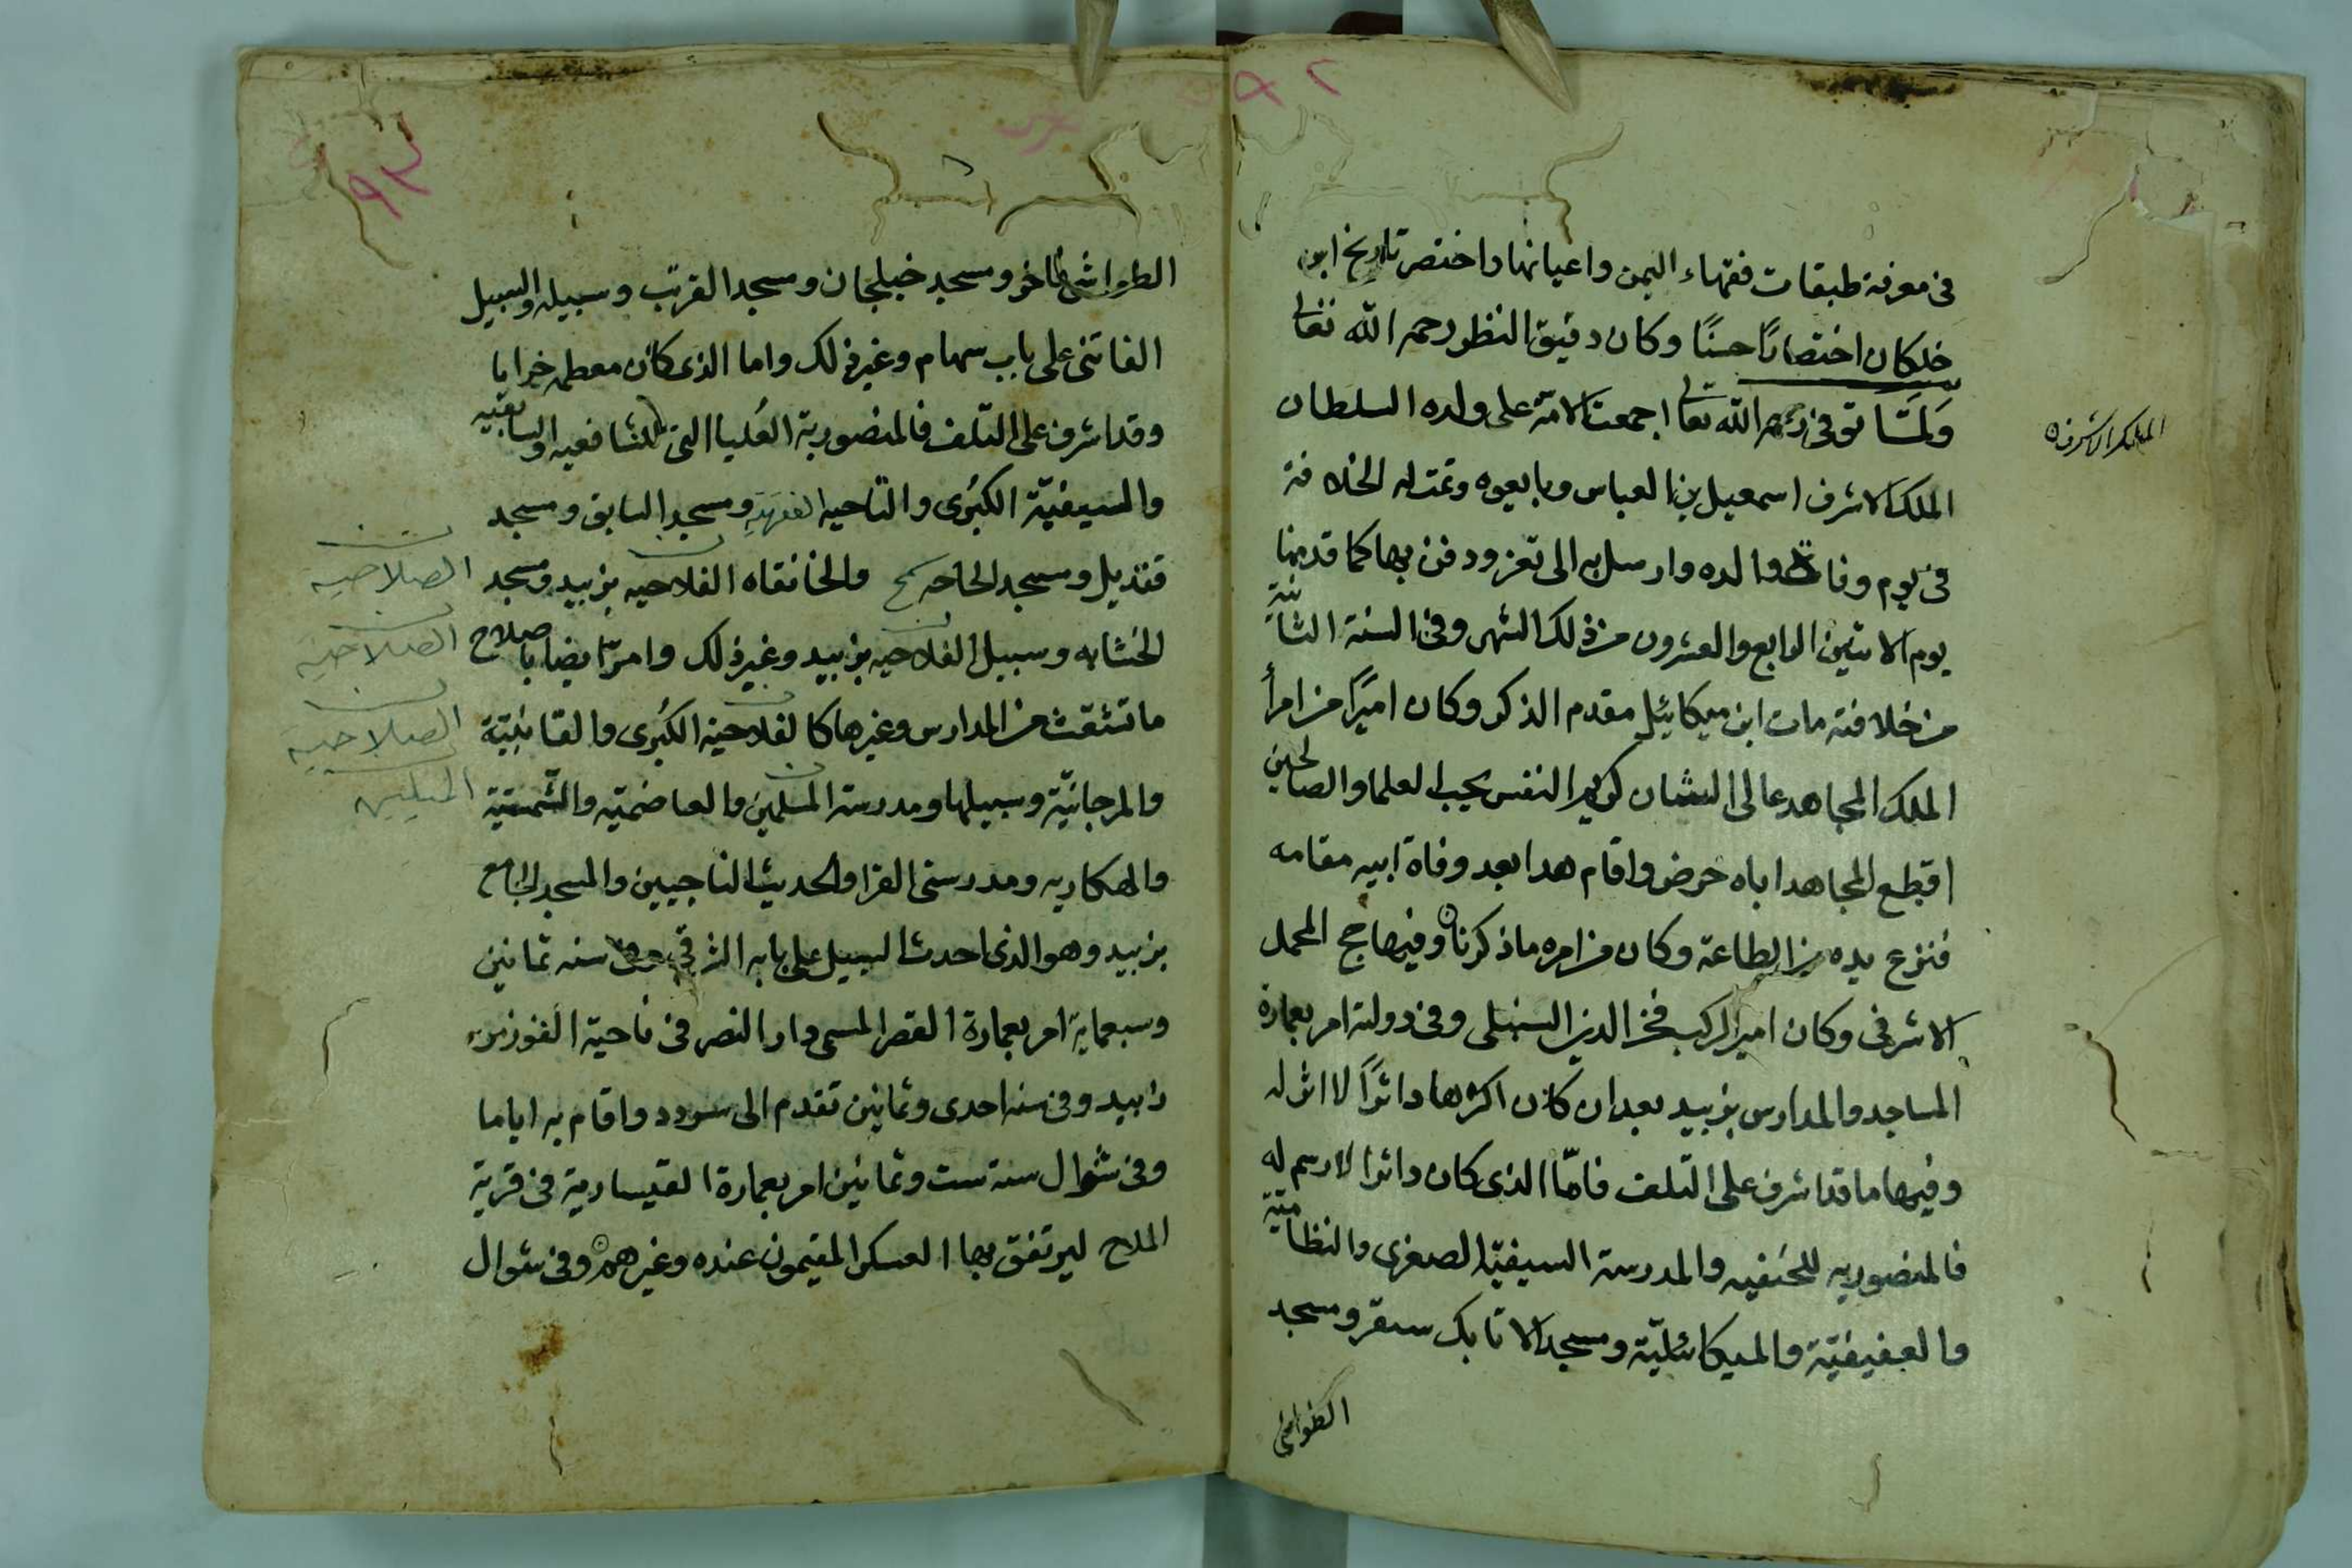 ٩٢
في معرفة طبقات فقهاء اليمن واعيانها واختصر تاريخ ابن
خلكان اختصارًا حسنًا وكان دقيق النظر رحمه الله تعالى
وَلمَّا توفى رحمه الله تعالى اجمعت الامة على ولده السلطان
الملك الاشرف
الملك الاشرف اسمعيل بن العباس وبايعوه وتمت له الخلافة
في يوم وفاة والده وارسل به الى تعز ودفن بها كما قدمنا
يوم الاثنين الرابع والعشرون من ذلك الشهر وفي السنة الثانية
من خلافته مات ابن ميكائيل مقدم الذكر وكان اميرًا من امرأ
الملك المجاهد عالى الشان كريم النفس يحب العلما والصالحين
اقطع المجاهد اباه حرض واقام هدا بعد وفاة ابيه مقامه
فنزع يده من الطاعة وكان من امره ما ذكرنا وفيها حج المحمل
الاشرفي وكان امير الركب فخر الدين السنبلى وفي دولته امر بعمارة
المساجد والمدارس بزبيد بعد ان كان اكثرها داثرًا لا اثر له
وفيها ما قد اشرف على التلف فامّا الذى كان داثرا لا رسم له
فالمنصوريه للحنفيه والمدرسة السيفيّه الصغرى والنظاميّة
والعفيفيّة والميكائليّة ومسجد الاتابك سنقر ومسجد
الطواشي
٩٣
الطواشي فاخر ومسجد خيلجان ومسجد القرتب وسبيله والسبيل
الفاتنى على باب سهام وغير ذلك واما الذى كان معطمه خرابا
وقد اشرف على التلف فالمنصورية العُليا التى للشافعيه والسابقيه
والسيفيّة الكبرى والتاجيه الفقهيّه ومسجد السابق ومسجد
قنديل ومسجد الحاجه والخانقاه الفلاحيه بزبيد ومسجد
الصلاحيه
الخشابه وسبيل الفلاحيه بزبيد وغير ذلك وامر ايضا باصلاح
الصلاحيه
ما تشقث من المدارس وغيرها كالفلاحية الكبرى والقائبيّة
الصلاحية
والمرجانيّة وسبيلها ومدرسة المسلمين والعاصميّه والشمسيّة
الميلين
والهكاريه ومدرستى القرا والحديث التاجيين والمسجد الجامع
بزبيد وهو الذى احدث السبيل على بابه الشرقي وفي سنه ثمانين
وسبعماية امر بعمارة القصر المسمى دار النصر في ناحية الفوز من
زبيد وفي سنه احدى وثمانين تقدم الى سردد واقام به اياما
وفي شوال سنة ست وثمانين امر بعمارة القيسارية في قرية
الملاح ليرتفق بها العسكر المقيمون عنده وغيرهم وفي شوال